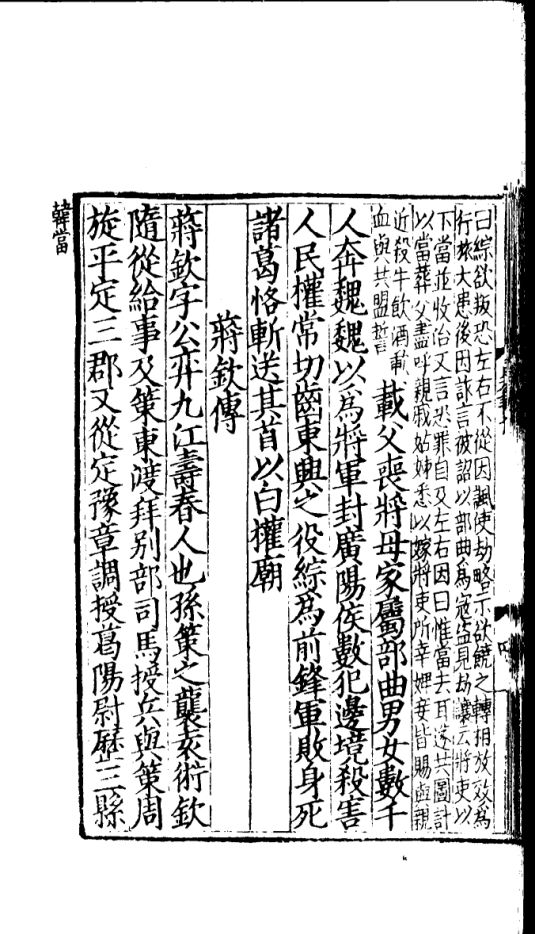 曰綜欲叛恐左右不從因諷使劫略示欲饒之轉相放效為
行旅大患後因詐言被詔以部曲為寇盜見劫讓云將吏以
下當並收治又言恐罪自及左右因曰惟當去耳遂共圖計
以當葬父盡呼親戚姑姊悉以嫁將吏所幸婢妾皆賜與親
近殺牛飲酒歃
血與共盟誓
載父喪將母家屬部曲男女數千
人奔魏魏以為將軍封廣陽侯數犯邊境殺害
人民權常切齒東興之役綜為前鋒軍敗身死
諸葛恪斬送其首以白權廟
蔣欽傳
蔣欽字公弈九江壽春人也孫策之襲袁術欽
隨從給事及策東渡拜別部司馬授兵與策周
旋平定三郡又從定豫章調授葛陽尉歷三縣
韓當